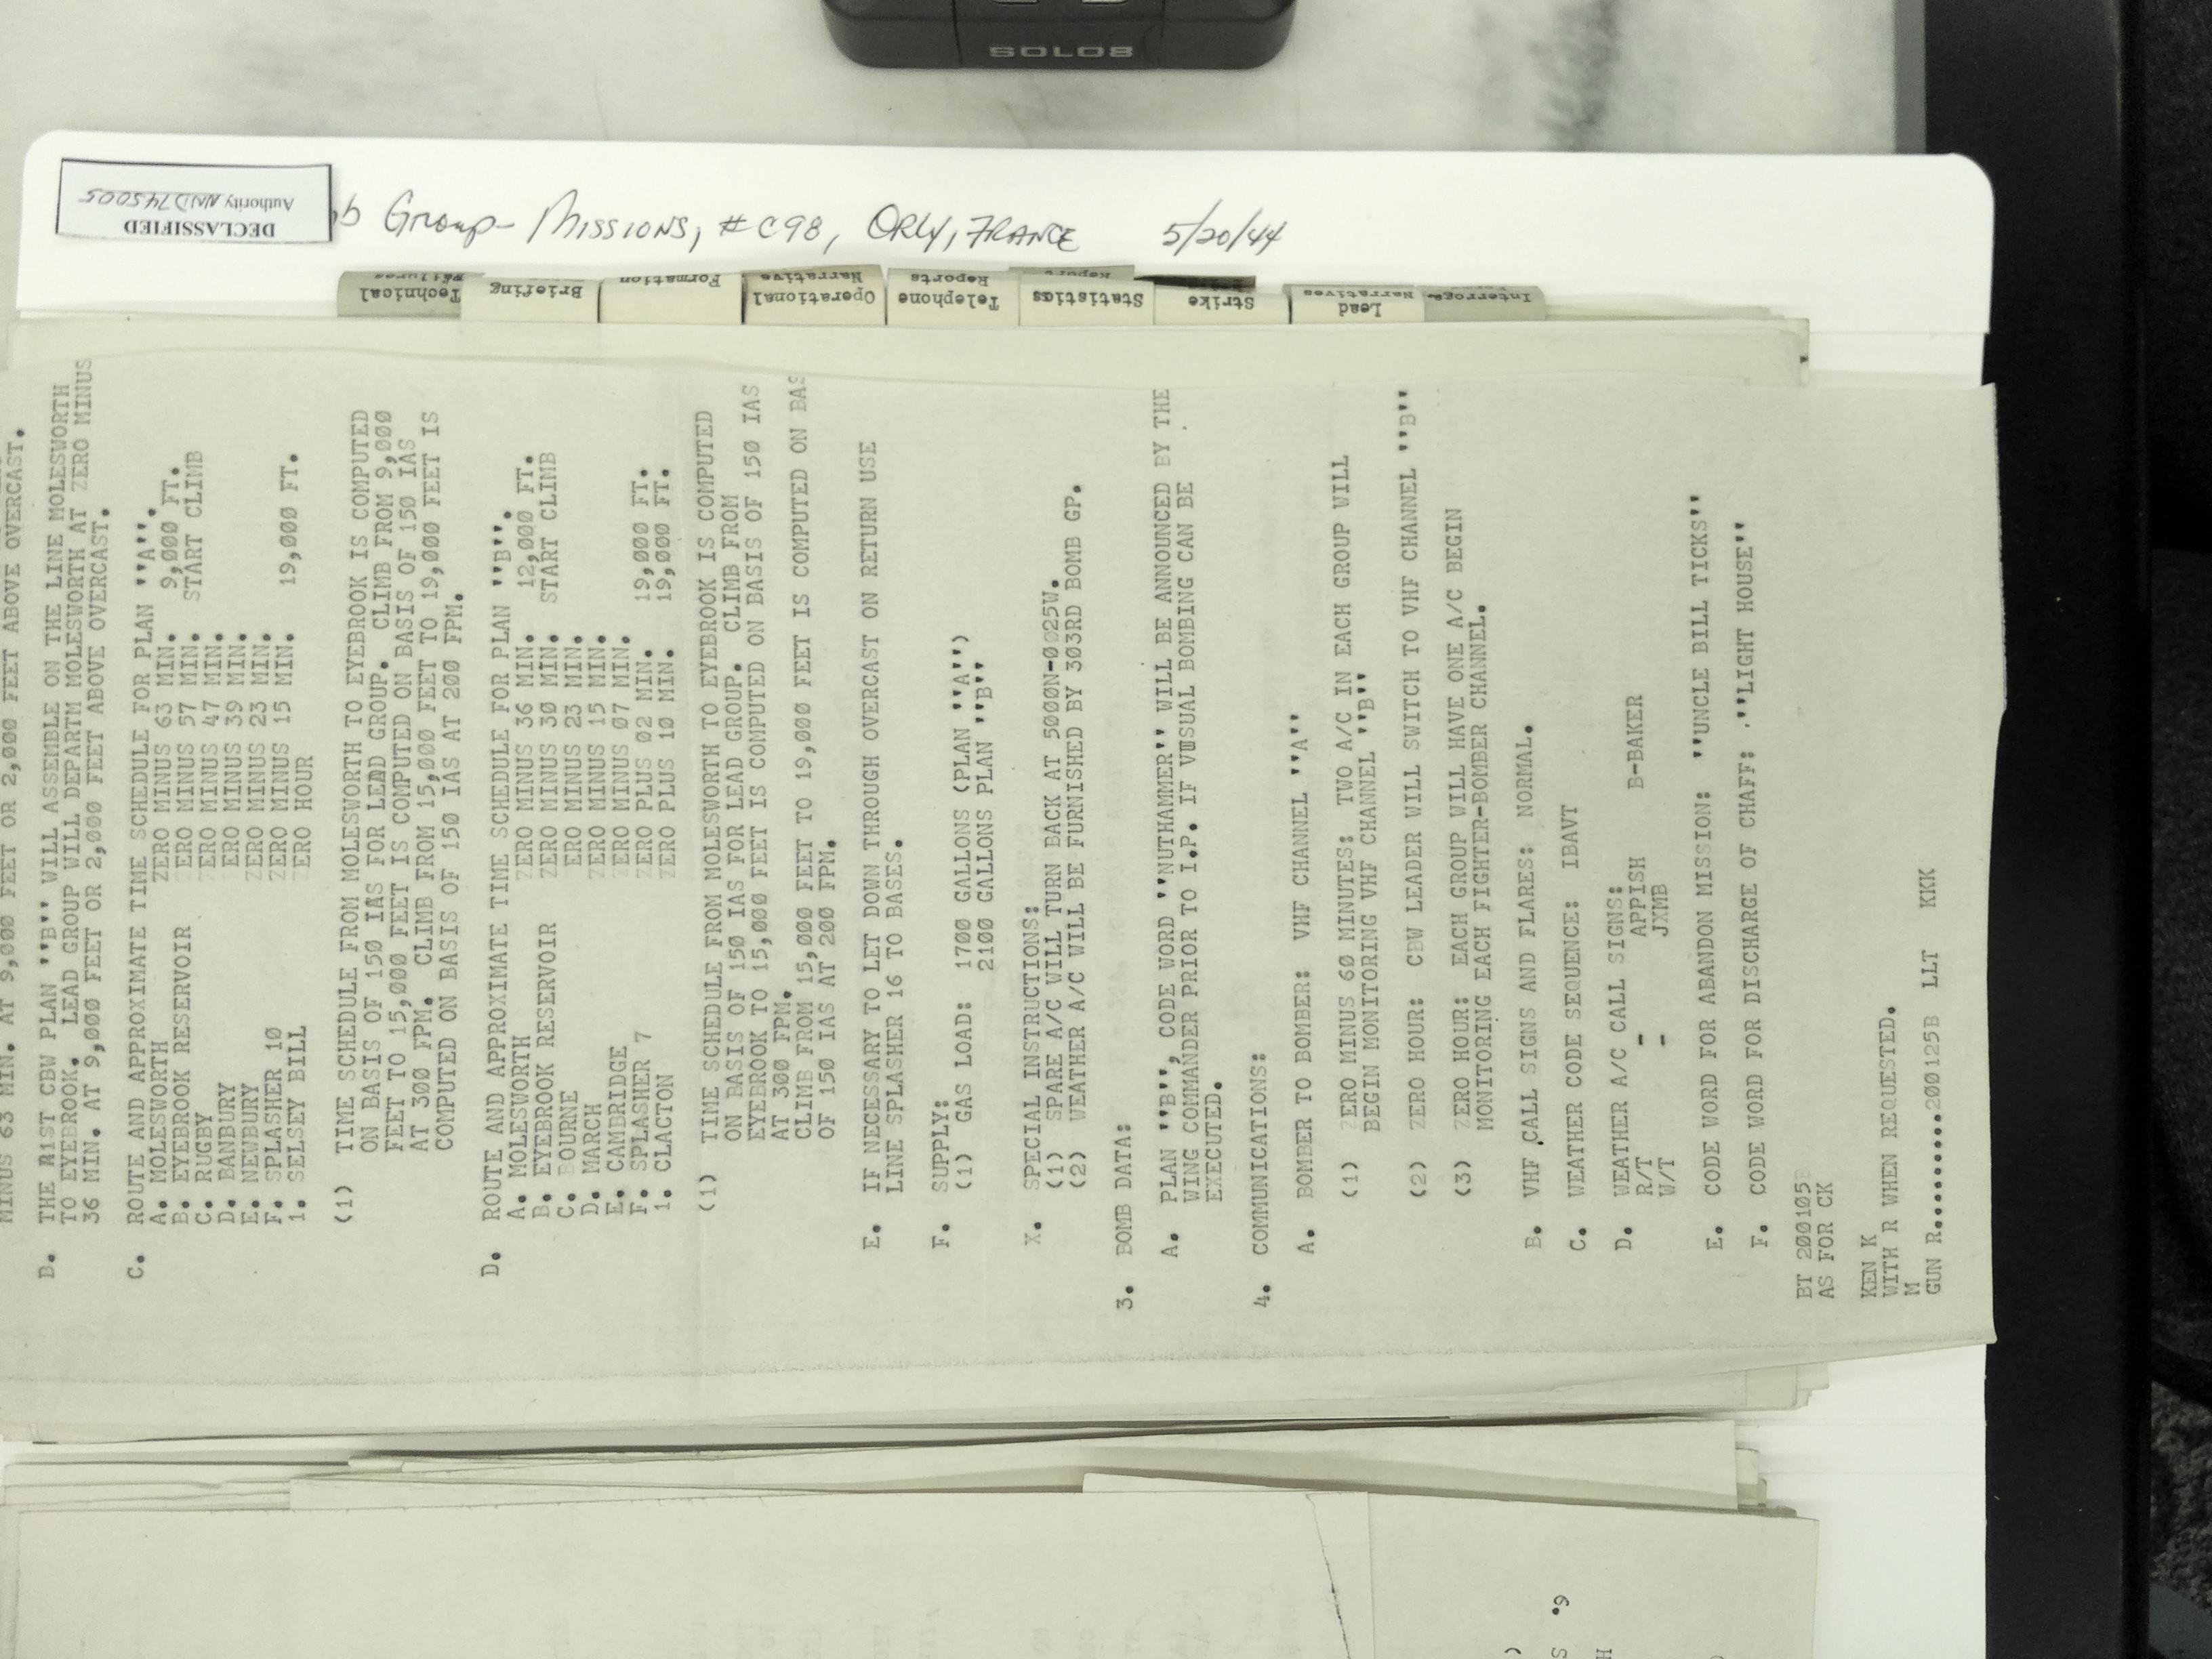 SOLO8
DECLASSIFIED
Authority NND 745005
Group- Missions, #C98, ORLY, FRANCE 5/20/44
Technical
Briefing
Formation
Operational
Narrative
Telephone
Reports
Statistics
Report
Strike
Lead
Narratives
Interroga-
MINUS 63 MIN. AT 9,000 FEET OR 2,000 FEET ABOVE OVERCAST.
B. THE R1ST CBW PLAN ''B'' WILL ASSEMBLE ON THE LINE MOLESWORTH
TO EYEBROOK. LEAD GROUP WILL DEPARTM MOLESWORTH AT ZERO MINUS
36 MIN. AT 9,000 FEET OR 2,000 FEET ABOVE OVERCAST.
C. ROUTE AND APPROXIMATE TIME SCHEDULE FOR PLAN ''A''.
A. MOLESWORTH ZERO MINUS 63 MIN. 9,000 FT.
B. EYEBROOK RESERVOIR ZERO MINUS 57 MIN. START CLIMB
C. RUGBY ZERO MINUS 47 MIN.
D. BANBURY ZERO MINUS 39 MIN.
E. NEWBURY ZERO MINUS 23 MIN.
F. SPLASHER 10 ZERO MINUS 15 MIN. 19,000 FT.
1. SELSEY BILL ZERO HOUR
(1) TIME SCHEDULE FROM MOLESWORTH TO EYEBROOK IS COMPUTED
ON BASIS OF 150 IAS FOR LEAD GROUP. CLIMB FROM 9,000
FEET TO 15,000 FEET IS COMPUTED ON BASIS OF 150 IAS
AT 300 FPM. CLIMB FROM 15,000 FEET TO 19,000 FEET IS
COMPUTED ON BASIS OF 150 IAS AT 200 FPM.
D. ROUTE AND APPROXIMATE TIME SCHEDULE FOR PLAN ''B''.
A. MOLESWORTH ZERO MINUS 36 MIN. 12,000 FT.
B. EYEBROOK RESERVOIR ZERO MINUS 30 MIN. START CLIMB
C. BOURNE ZERO MINUS 23 MIN.
D. MARCH ZERO MINUS 15 MIN.
E. CAMBRIDGE ZERO MINUS 07 MIN.
F. SPLASHER 7 ZERO PLUS 02 MIN. 19,000 FT.
1. CLACTON ZERO PLUS 10 MIN. 19,000 FT.
(1) TIME SCHEDULE FROM MOLESWORTH TO EYEBROOK IS COMPUTED
ON BASIS OF 150 IAS FOR LEAD GROUP. CLIMB FROM
EYEBROOK TO 15,000 FEET IS COMPUTED ON BASIS OF 150 IAS
AT 300 FPM.
CLIMB FROM 15,000 FEET TO 19,000 FEET IS COMPUTED ON BAS
OF 150 IAS AT 200 FPM.
E. IF NECESSARY TO LET DOWN THROUGH OVERCAST ON RETURN USE
LINE SPLASHER 16 TO BASES.
F. SUPPLY:
(1) GAS LOAD: 1700 GALLONS (PLAN ''A'')
2100 GALLONS PLAN ''B''
X. SPECIAL INSTRUCTIONS:
(1) SPARE A/C WILL TURN BACK AT 5000N-0025W.
(2) WEATHER A/C WILL BE FURNISHED BY 303RD BOMB GP.
3. BOMB DATA:
A. PLAN ''B'', CODE WORD ''NUTHAMMER'' WILL BE ANNOUNCED BY THE
WING COMMANDER PRIOR TO I.P. IF VUSUAL BOMBING CAN BE
EXECUTED.
4. COMMUNICATIONS:
A. BOMBER TO BOMBER: VHF CHANNEL ''A''
(1) ZERO MINUS 60 MINUTES: TWO A/C IN EACH GROUP WILL
BEGIN MONITORING VHF CHANNEL ''B''
(2) ZERO HOUR: CBW LEADER WILL SWITCH TO VHF CHANNEL ''B''
(3) ZERO HOUR: EACH GROUP WILL HAVE ONE A/C BEGIN
MONITORING EACH FIGHTER-BOMBER CHANNEL.
B. VHF CALL SIGNS AND FLARES: NORMAL.
C. WEATHER CODE SEQUENCE: IBAVT
D. WEATHER A/C CALL SIGNS:
R/T - APPISH B-BAKER
W/T - JXMB
E. CODE WORD FOR ABANDON MISSION: ''UNCLE BILL TICKS''
F. CODE WORD FOR DISCHARGE OF CHAFF: .''LIGHT HOUSE''
BT 200105B
AS FOR CK
KEN K
WITH R WHEN REQUESTED.
M
GUN R..........200125B LLT KKK